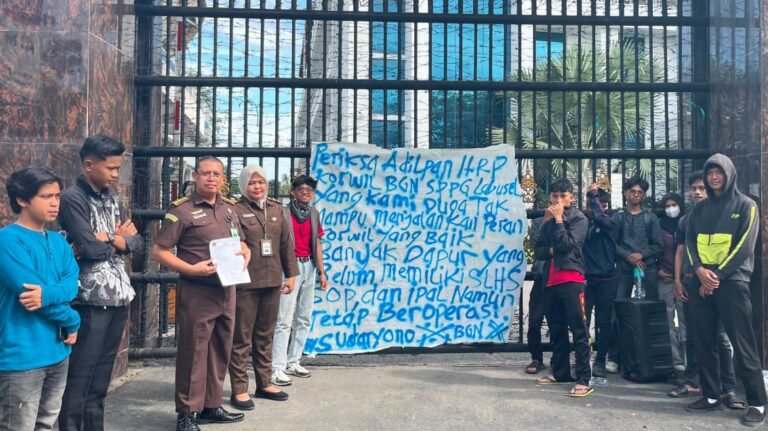 Periksa Adilpan H.R.P
Korwil BGN SPPG Labusel
yang kami Duga Tak
Mampu menjalankan Peran
Korwil yang Baik
Banyak Dapur yang
Belum Memiliki SLHS
SOP, dan ipal Namun
Tetap Beroperasi!
#Sudaryono BGN